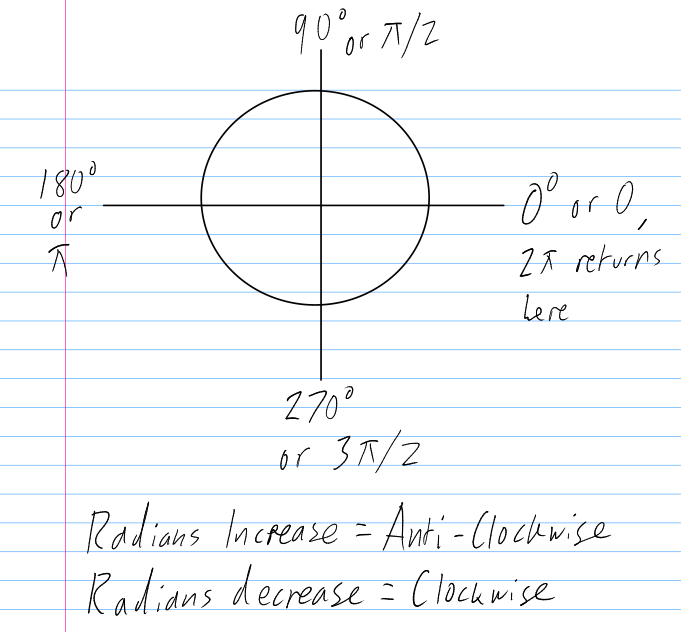 90° or π/2
180°
or
π
0° or 0,
2π returns
here
270°
or 3π/2
Radians Increase = Anti-Clockwise
Radians decrease = Clockwise